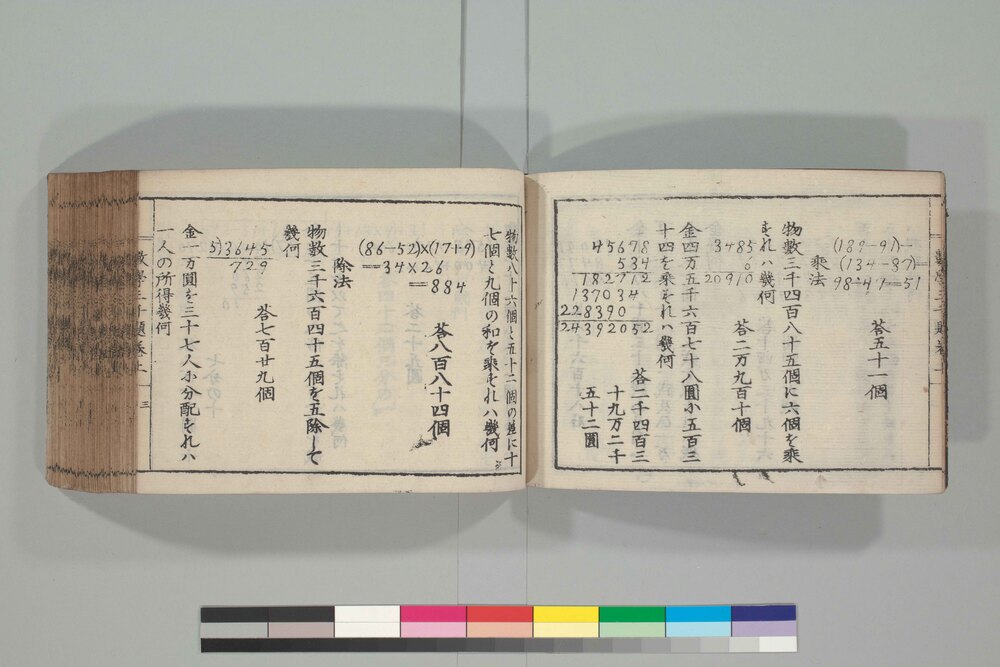 (189-91)-
(134-87)=
98-47=51
答五十一個
乗法
物數三千四百八十五個に六個を乗
それハ幾何
3485
6
20910
答二万九百十個
金四万五千六百七十八圓小五百三
十四を乗それハ幾何
45678
534
182712
137034
228390
24392052
答二千四百三
十九万二千
五十二圓
物數八十六個と五十二個の差に十
七個と九個の和を乗それハ幾何
(86-52)×(17+9)
=34×26
=884
答八百八十四個
除法
物數三千六百四十五個を五除して
幾何
5)3645
729
答七百廿九個
金一万圓を三十七人小分配それハ
一人の所得幾何
三